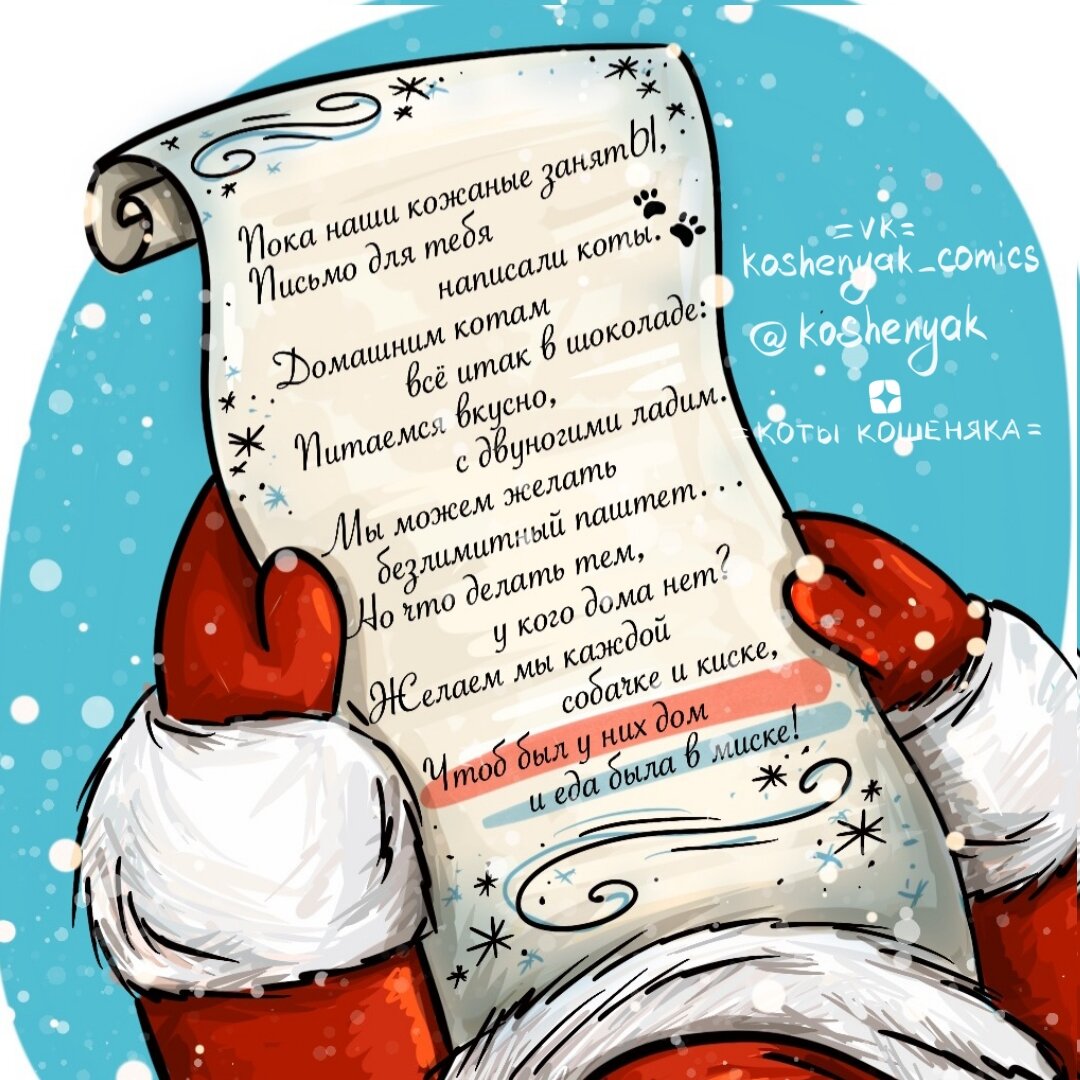 Пока наши кожаные занятЫ,
Письмо для тебя
написали коты.
Домашним котам
всё итак в шоколаде:
Питаемся вкусно,
с двуногими ладим.
Мы можем желать
безлимитный паштет...
Но что делать тем,
у кого дома нет?
Желаем мы каждой
собачке и киске,
Чтоб был у них дом
и еда была в миске!
=VK=
koshenyak_comics
@koshenyak
=КОТЫ КОШЕНЯКА=